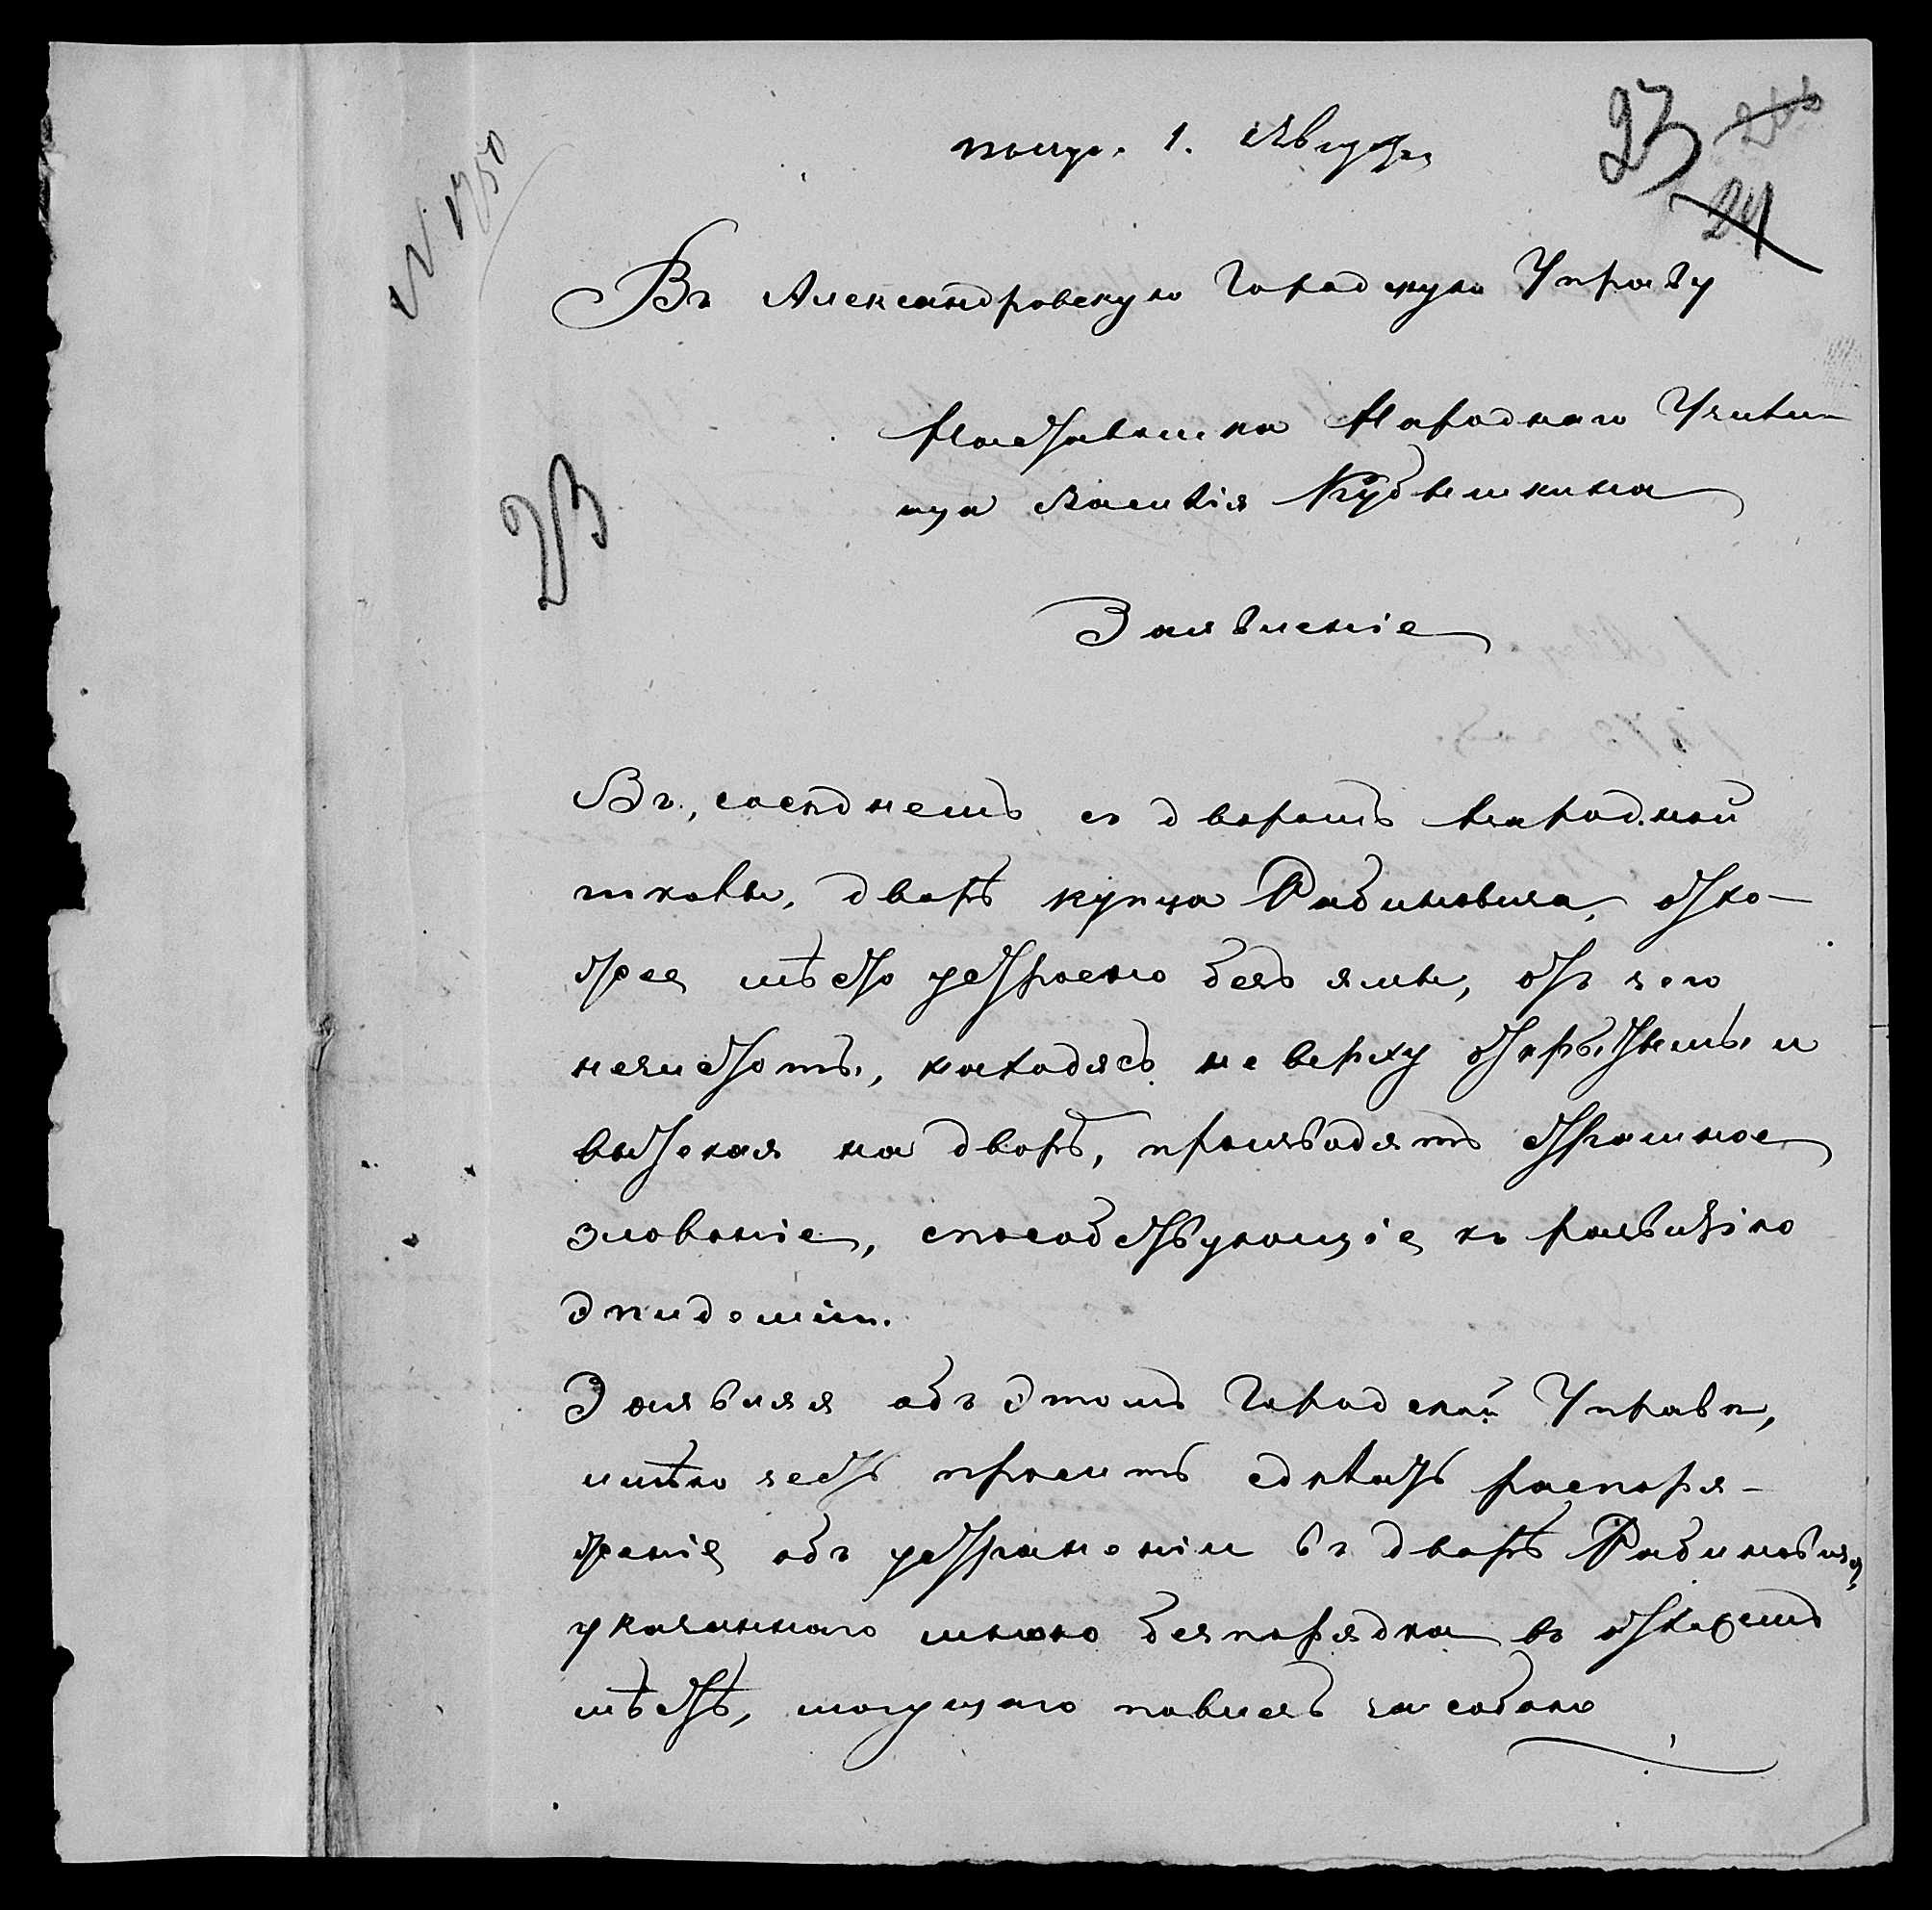 получ. 1. Августа
23
24
№ 1750
Въ Александровскую Городскую Управу
23
Наставника Народнаго Учили-
ща Василія Кубышкина
Заявленіе
Въ, сосѣднемъ съ дворомъ народной
школы, дворѣ купца Рабиновича, отхо-
жее мѣсто устроено безъ ямы, отъ чего
нечистоты, находясь на верху открытыми и
вытекая на дворъ, производятъ страшное
зловоніе, способствующіе къ развитію
эпидеміи.
Заявляя объ этомъ Городской Управѣ,
имѣю честь просить сдѣлать распоря-
женіе объ устраненіи въ дворѣ Рабиновича,
указаннаго мною безпорядка въ отхожемъ
мѣстѣ, могущаго повлечь за собою